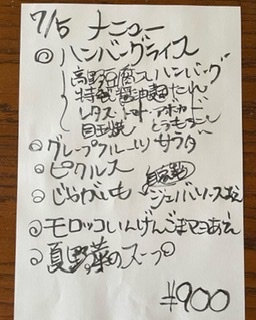 7/5 メニュー
◎ハンバーグライス
高野豆腐入ハンバーグ
特製醤油麹たれ
レタス トマト アボカド
目玉焼 とうもろこし
◎グレープフルーツサラダ
◎ピクルス
◎じゃがいも 自家製 ジェノバソース和え
◎モロッコいんげんごまマヨあえ
◎夏野菜のスープ
¥900